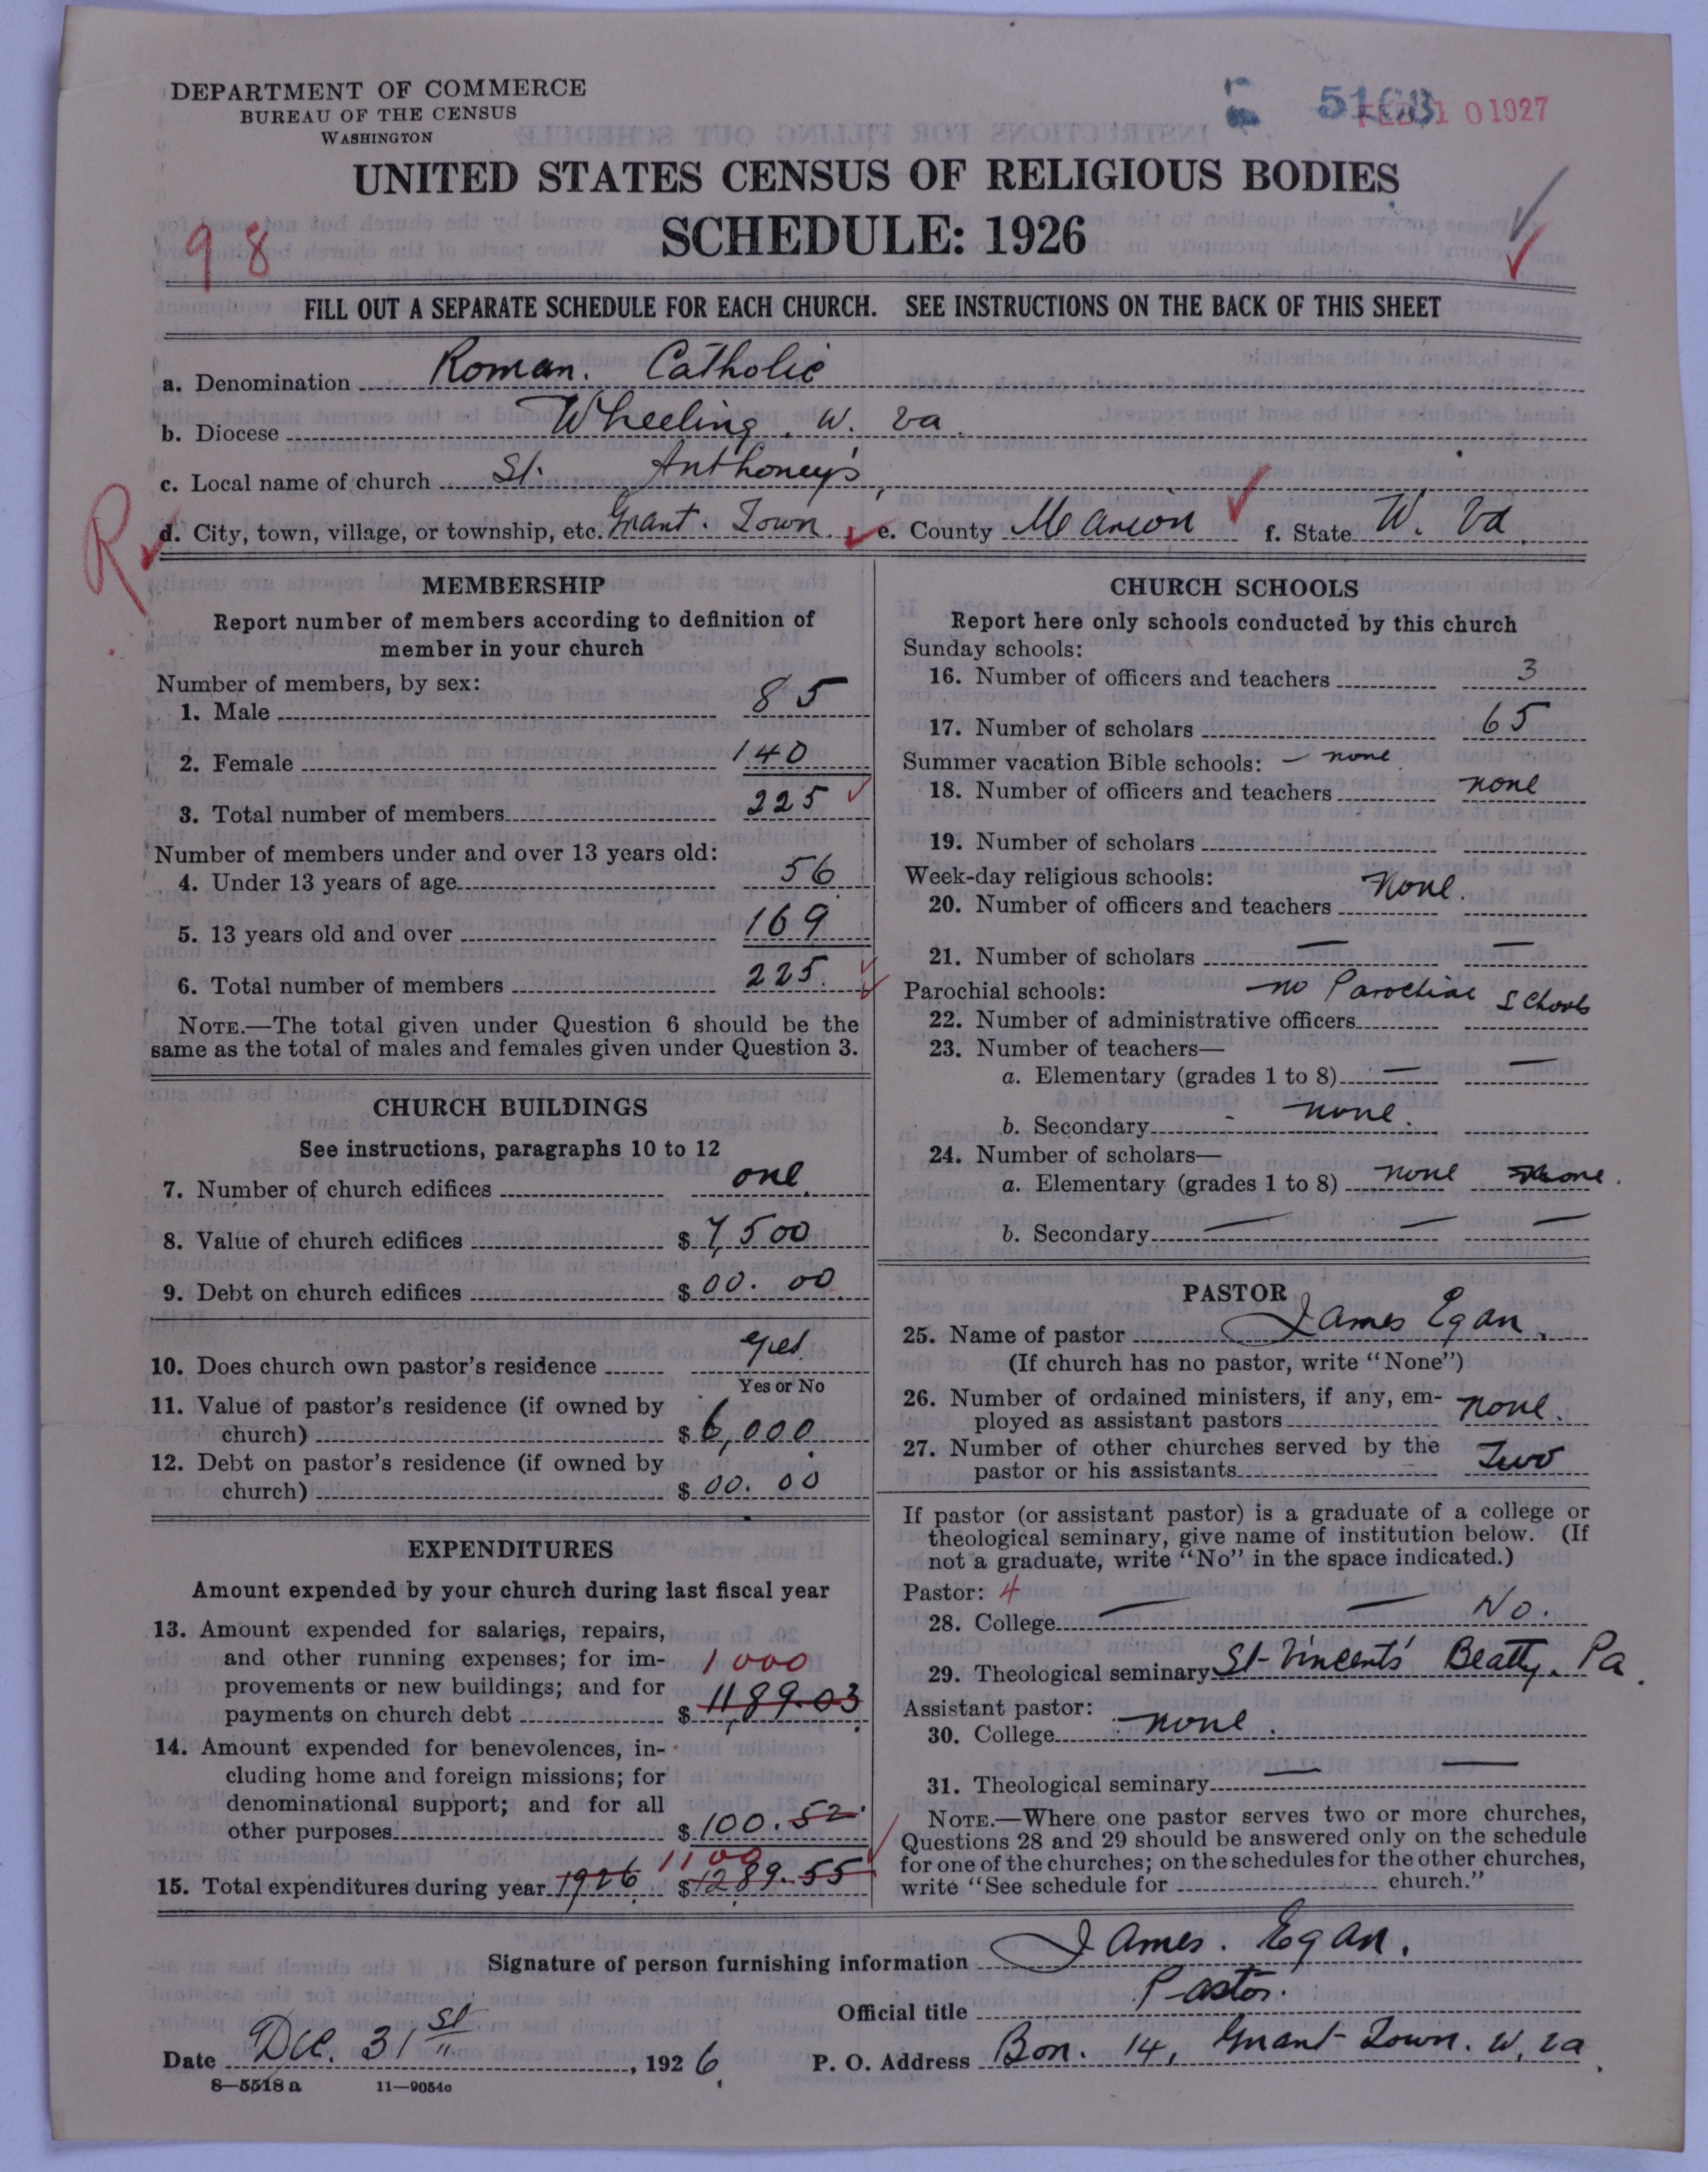 DEPARTMENT OF COMMERCE
BUREAU OF THE CENSUS
WASHINGTON
FEB 10 1927
UNITED STATES CENSUS OF RELIGIOUS BODIES
SCHEDULE: 1926
98
FILL OUT A SEPARATE SCHEDULE FOR EACH CHURCH. SEE INSTRUCTIONS ON THE BACK OF THIS SHEET
a. Denomination Roman. Catholic
b. Diocese Wheeling. W. Va.
c. Local name of church St. Anthoney's
R
d. City, town, village, or township, etc. Grant. Town e. County Marion f. State W. Va.
MEMBERSHIP
Report number of members according to definition of
member in your church
Number of members, by sex:
1. Male 85
2. Female 140
3. Total number of members 225
Number of members under and over 13 years old:
4. Under 13 years of age 56
5. 13 years old and over 169
6. Total number of members 225.
NOTE.—The total given under Question 6 should be the
same as the total of males and females given under Question 3.
CHURCH BUILDINGS
See instructions, paragraphs 10 to 12
7. Number of church edifices one.
8. Value of church edifices $ 7,500
9. Debt on church edifices $ 00. 00
10. Does church own pastor's residence yes.
Yes or No
11. Value of pastor's residence (if owned by
church) $ 6,000.
12. Debt on pastor's residence (if owned by
church) $ 00. 00
EXPENDITURES
Amount expended by your church during last fiscal year
13. Amount expended for salaries, repairs,
and other running expenses; for im-
provements or new buildings; and for 1000
payments on church debt $ 1,189.03
14. Amount expended for benevolences, in-
cluding home and foreign missions; for
denominational support; and for all
other purposes $ 100.52
1100
15. Total expenditures during year 1926 $ 1289.55
CHURCH SCHOOLS
Report here only schools conducted by this church
Sunday schools:
16. Number of officers and teachers 3
17. Number of scholars 65
Summer vacation Bible schools: — none
18. Number of officers and teachers none
19. Number of scholars
Week-day religious schools: none.
20. Number of officers and teachers
21. Number of scholars — —
Parochial schools: no Parochial Schools
22. Number of administrative officers
23. Number of teachers—
a. Elementary (grades 1 to 8) — —
b. Secondary none.
24. Number of scholars—
a. Elementary (grades 1 to 8) none none.
b. Secondary — — —
PASTOR
25. Name of pastor James Egan.
(If church has no pastor, write "None")
26. Number of ordained ministers, if any, em-
ployed as assistant pastors none.
27. Number of other churches served by the
pastor or his assistants Two
If pastor (or assistant pastor) is a graduate of a college or
theological seminary, give name of institution below. (If
not a graduate, write "No" in the space indicated.)
Pastor: 4
28. College — — No.
29. Theological seminary St-Vincents' Beatty. Pa.
Assistant pastor:
30. College none.
31. Theological seminary — —
NOTE.—Where one pastor serves two or more churches,
Questions 28 and 29 should be answered only on the schedule
for one of the churches; on the schedules for the other churches,
write "See schedule for church."
Signature of person furnishing information James. Egan.
Official title Pastor.
Date Dec. 31st, 1926. P. O. Address Box. 14, Grant Town. W. Va.
8—5518 a 11—9054c